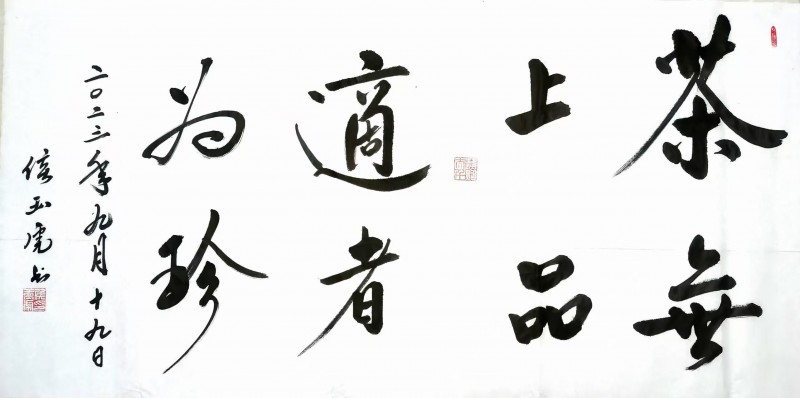 茶無
上品
適者
为珍
二〇二三年九月十九日
信玉虎书